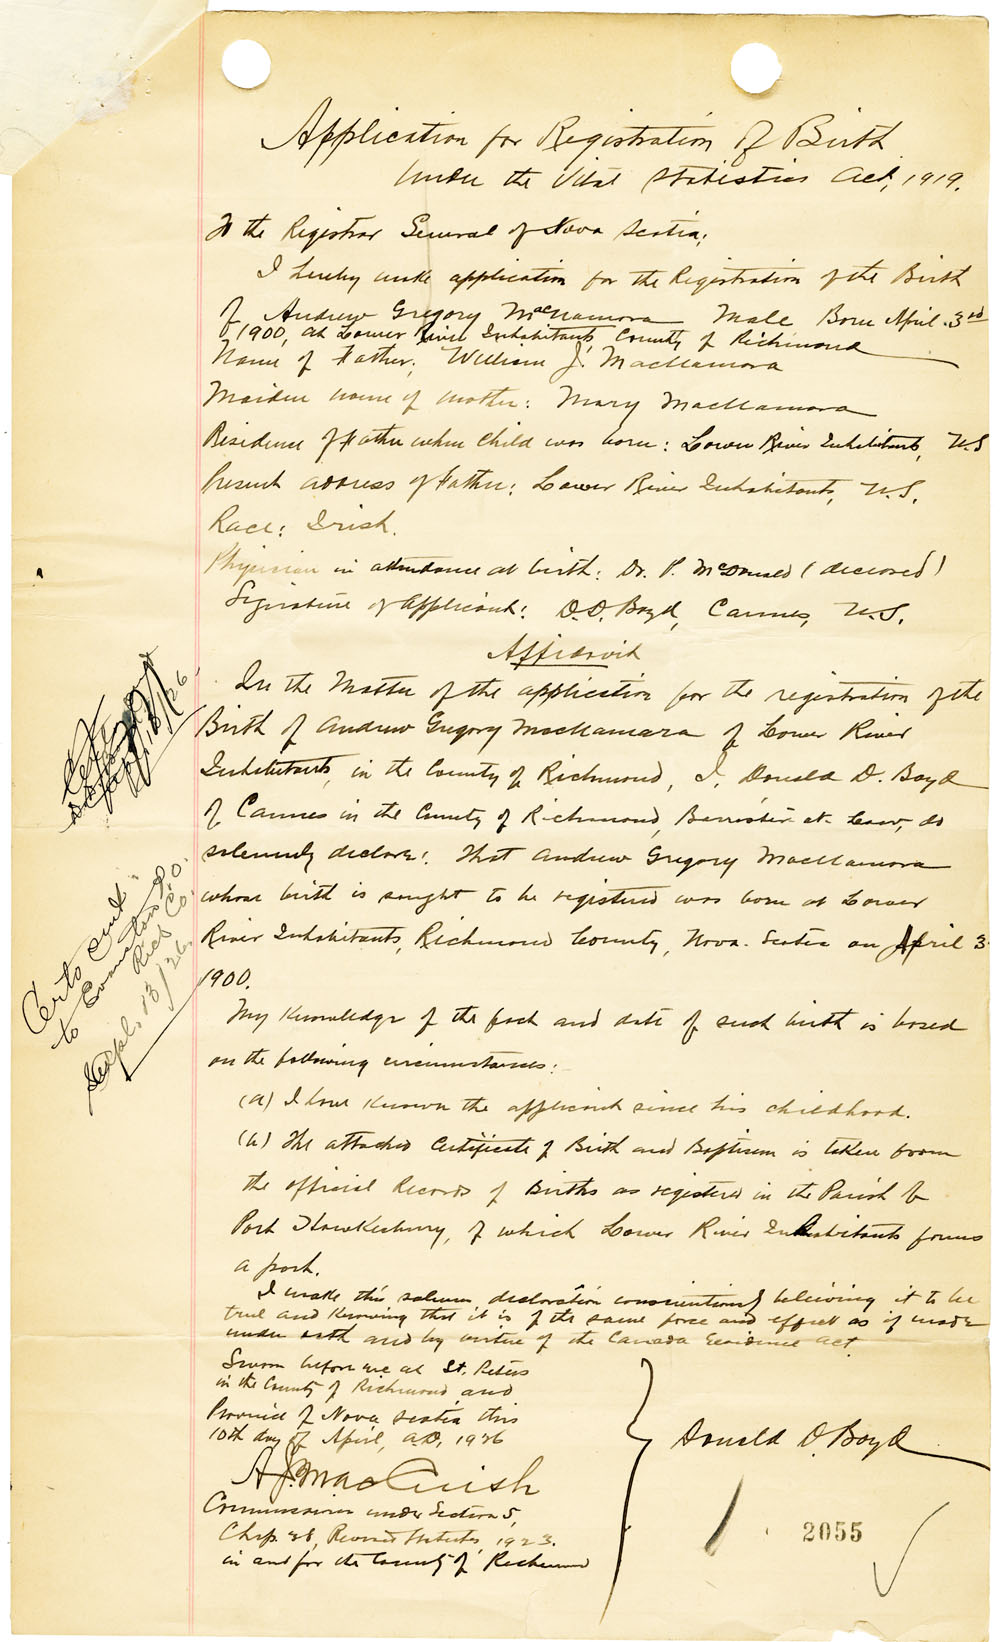 Application for Registration of Birth
Under the Vital Statistics Act, 1919.
To the Registrar General of Nova Scotia;
I hereby make application for the Registration of the Birth
of Andrew Gregory MacNamara Male Born April 3rd
1900, at Lower River Inhabitants County of Richmond
Name of Father; William J. MacNamara
Maiden name of mother: Mary MacNamara
Residence of Father when Child was born: Lower River Inhabitants, N.S
Present address of Father; Lower River Inhabitants, N.S.
Race: Irish.
Physician in attendance at birth: Dr. P. McDonald (deceased)
Signature of Applicant: D.D. Boyd, Cannes, N.S.
Affidavit
In the Matter of the application for the registration of the
Birth of Andrew Gregory MacNamara of Lower River
Inhabitants, in the County of Richmond, I, Donald D. Boyd
of Cannes in the County of Richmond, Barrister at Law, do
solemnly declare: That Andrew Gregory MacNamara
whose birth is sought to be registered was born at Lower
River Inhabitants, Richmond County, Nova Scotia on April 3
1900.
My Knowledge of the fact and date of such birth is based
on the following circumstances:
(a) I have known the applicant since his childhood.
(b) The attached Certificate of Birth and Baptism is taken from
the official Records of Births as registered in the Parish of
Port Hawkesbury, of which Lower River Inhabitants forms
a part.
I make this solemn declaration conscientiously believing it to be
true and knowing that it is of the same force and effect as if made
under oath and by virtue of the Canada Evidence Act.
Sworn before me at St. Peters
in the County of Richmond, and
Province of Nova Scotia this
10th day of April, A.D. 1926
A J. MacCuish
Commissioner under Section 5,
Chap. 28, Revised Statutes, 1923.
in and for the County of Richmond
Donald D. Boyd
2055
Certs sent
to Evanston P.O.
Rich Co.
Sept. 13/26